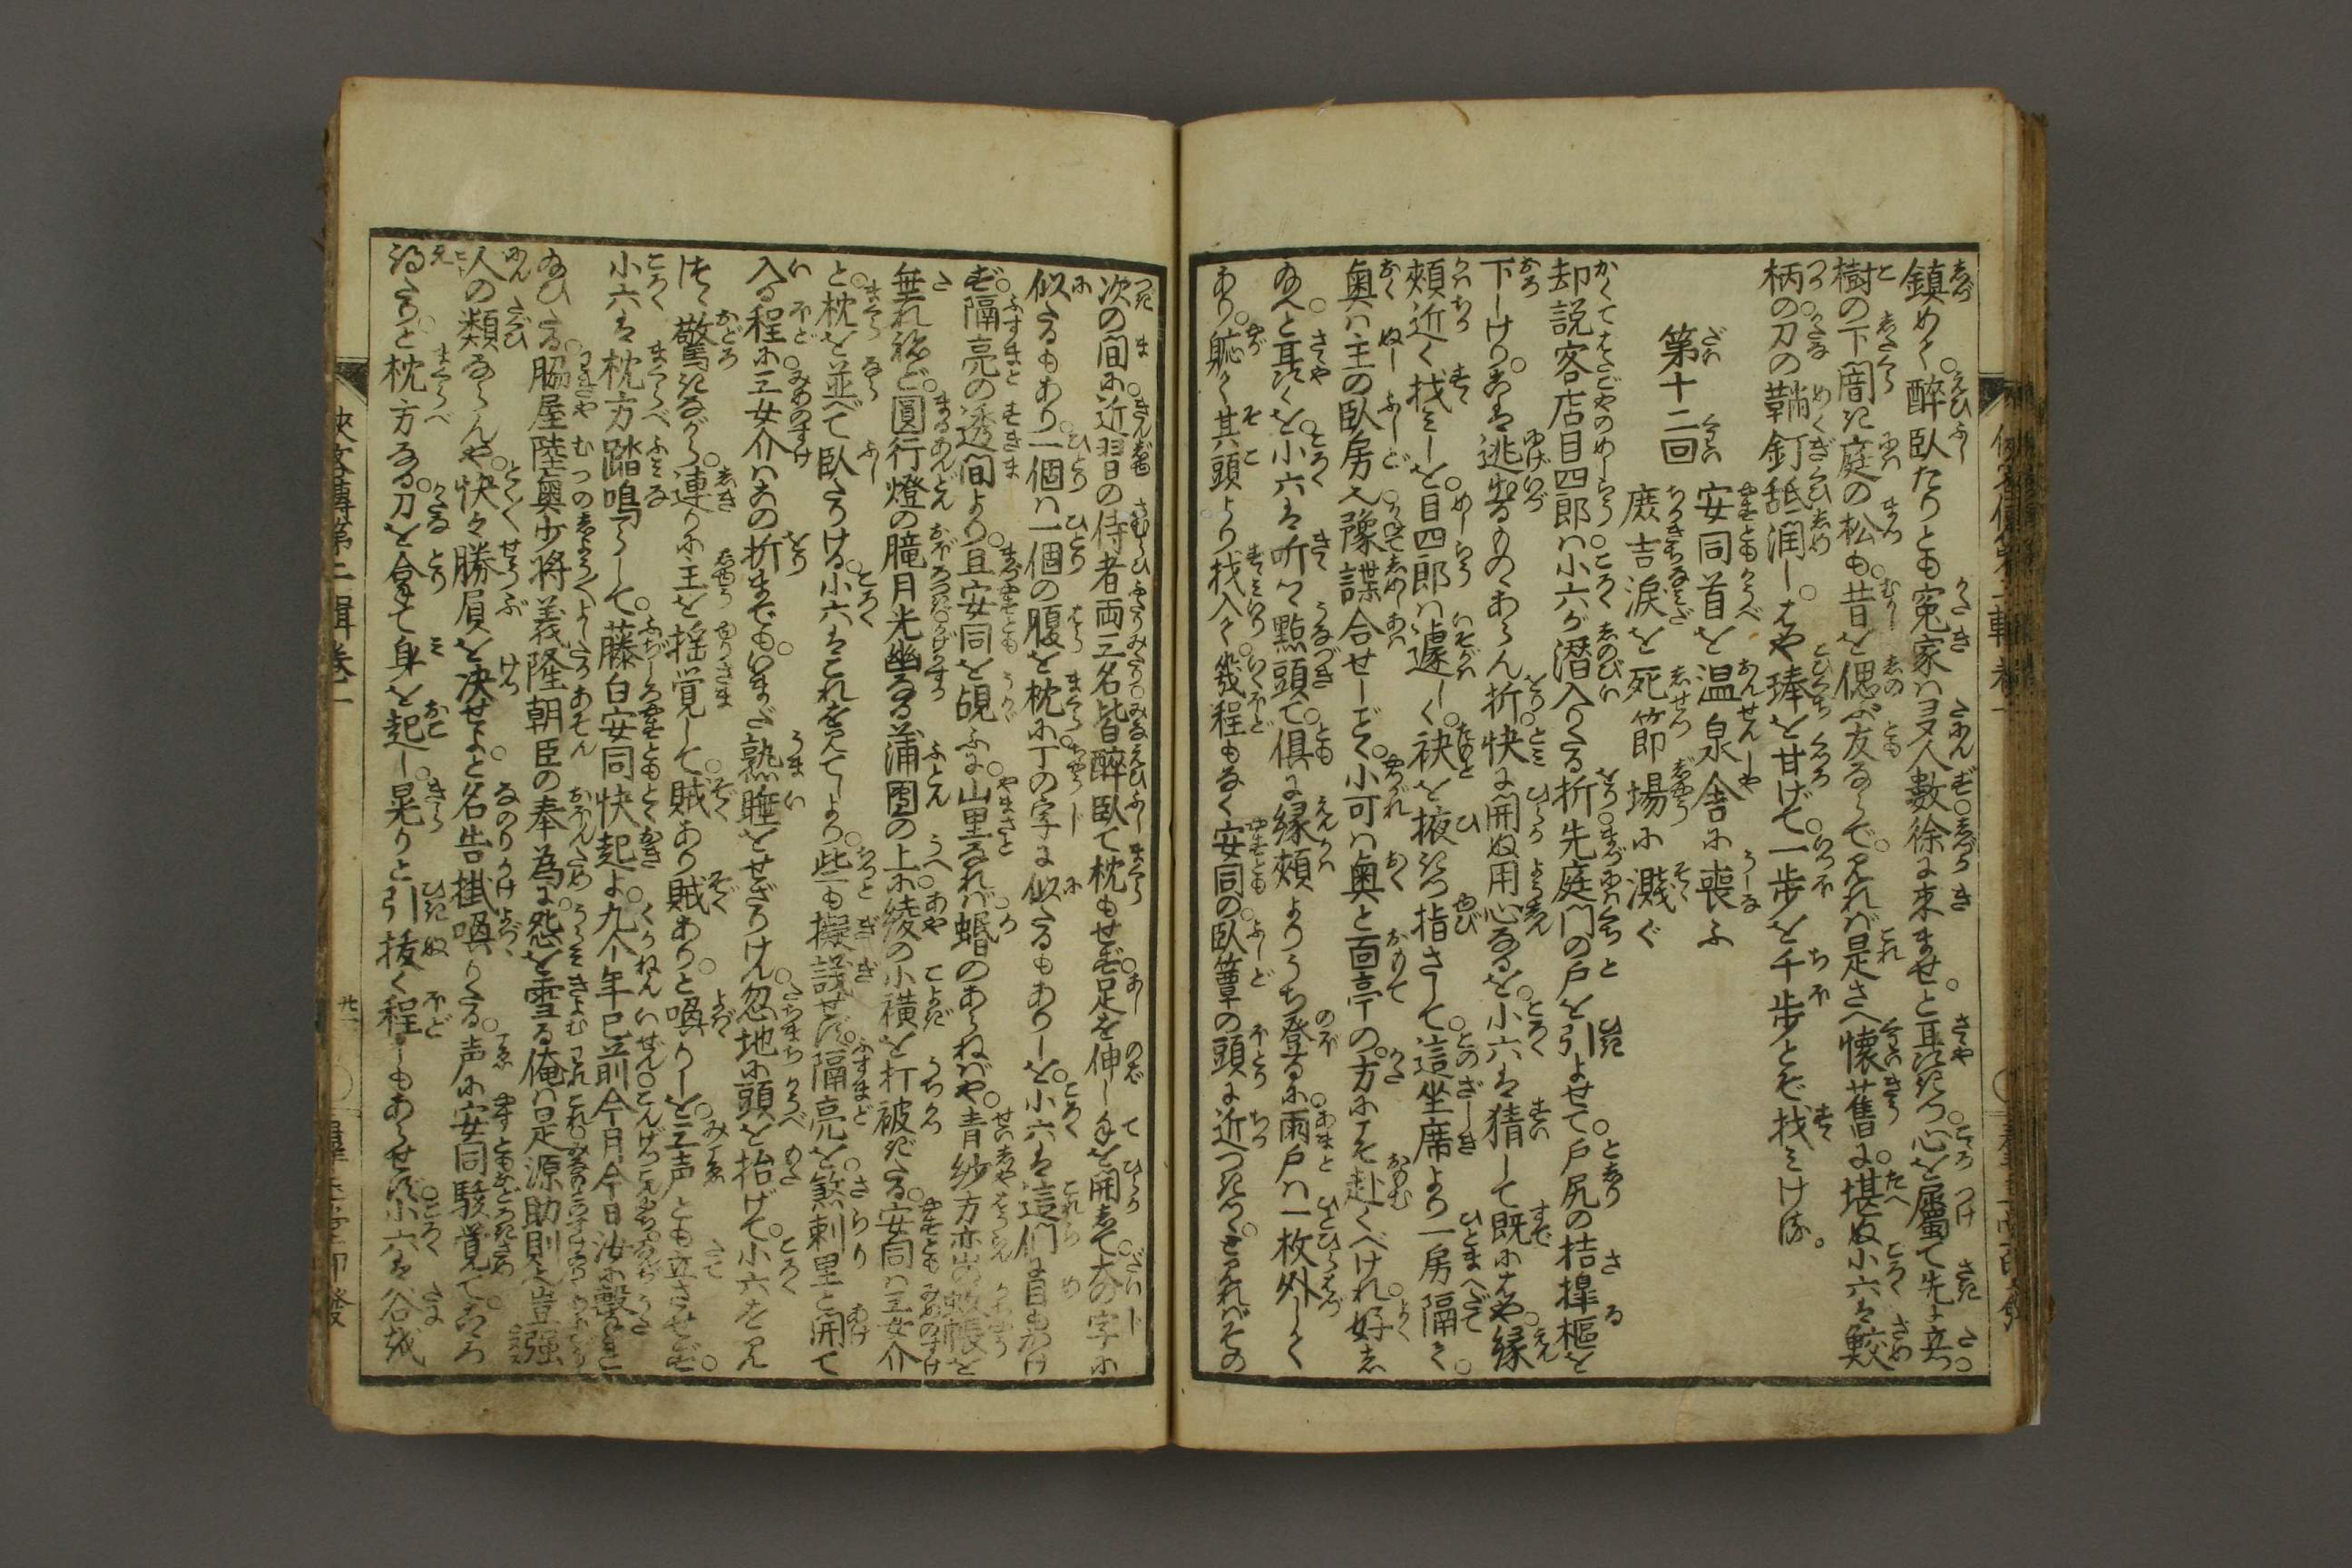 鎮めて。酔臥たりとも寃家はヨタ人數徐に来ませ。と耳語きつ。心を属て先に立。
樹の下闇き庭の松も。昔を偲ぶ友ならで。みれば是さへ懐舊に。堪ぬ小六は鮫
柄の。刀の鞆釘舐潤し。はや琫を甘げて。一歩を千歩とぞ找みける。
第十二回
安同首を温泉舎に喪ふ
庶吉涙を死節場に濺ぐ
却説客店目四郎は。小六が潜入りたる折。先庭門の戸を引よせて。戸尻の桔槹樞を
下しけり。こは逃出るもの丶あらん折。快に開ぬ用心なるを。小六は猜して既にはや。縁
頬近く找みしを。目四郎は遽しく。袂を掖きつ指さして。這坐席より一房隔て。
奥は主の臥房也。豫諜合せしごとく。小可は奥と面亭の。方にそ赴くべけれ。好し
給へと耳語くを。小六は听つ丶點頭て。倶に縁頬よりうち登るに。雨戸は一枚外してく
あり。躮て其頭より找入りて。幾程もなく安同の。臥簟の頭に近つきつ丶。とみればその
次の間に。近習の侍者両三名。皆醉臥て枕もせず。足を伸し手を開きて。大の字に
似たるもあり。一個は一個の腹を枕に。丁の字に似たるもありしを。小六は這們に目もかけ
ず。隔亮の透間より。且安同を覘ふに。山里なれば。蚊のあらねばや。青紗方亦出の蚊帳を
無れねど。圓行燈の朧月。光幽なる蒲團の上に。綾の小横を打被ぎたる。安同は三女介
と。枕を並べて臥たりける。小六はこれをみてしより。些も擬議せず。隔亮を。煞刺里と開て
入る程に。三女介はこの折までも。いまだ熟睡をせざりけん。忽地に頭を抬げて。小六をみ
つ丶驚きながら。連りに主を揺覚して。賊あり賊あり。と喚りしを。三声とも立させず。
小六は枕方踏鳴らして。藤白安同快起よ。九个年已前今月今日。汝に撃
給ひたる。脇屋陸奥少将義隆朝臣の奉為に。怨を雪る俺は是。源助則也。豈強
人の類ならんや。快々勝屓を決せよ。と名告掛喚りたる。声に安同駭覚て。こころ
得たりと枕方なる。刀を拿て身を起し。晃りと引抜く程しもあらせず。小六は